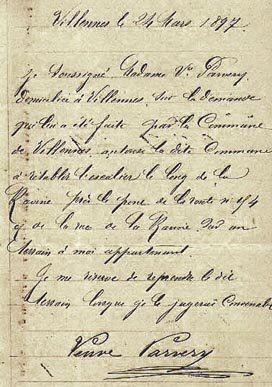 Villennes le 24 Mars 1897
je soussigné Madame Vve Parvery
domiciliée à Villennes, sur la demande
qui lui a été faite par la Commune
de Villennes, autorise la dite Commune
à rétablir l'escalier le long de la
Ravine près le pont de la route n° 154
de la rue de la Ravine sur un
terrain à moi appartenant.
Je me réserve de reprendre le dit
terrain lorsque je le jugerai convenable
Veuve Parvery